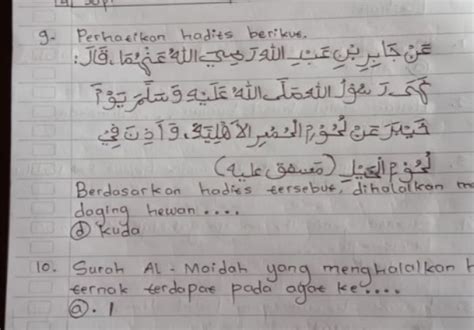 9. Perhatikan hadits berikut.
عَنْ جَابِرِ بْنِ عَبْدِ اللّٰهِ رَضِيَ اللّٰهُ عَنْهُمَا، قَالَ:
نَهَى رَسُوْلُ اللّٰهِ صَلَّى اللّٰهُ عَلَيْهِ وَسَلَّمَ يَوْمَ
خَيْبَرَ عَنْ لُحُوْمِ الْحُمُرِ الْأَهْلِيَّةِ، وَأَذِنَ فِيْ
لُحُوْمِ الْخَيْلِ (متفق عليه)
Berdasarkan hadits tersebut, dihalalkan
daging hewan ....
(d) Kuda
10. Surah Al-Maidah yang menghalalkan
ternak terdapat pada ayat ke....
(a). 1